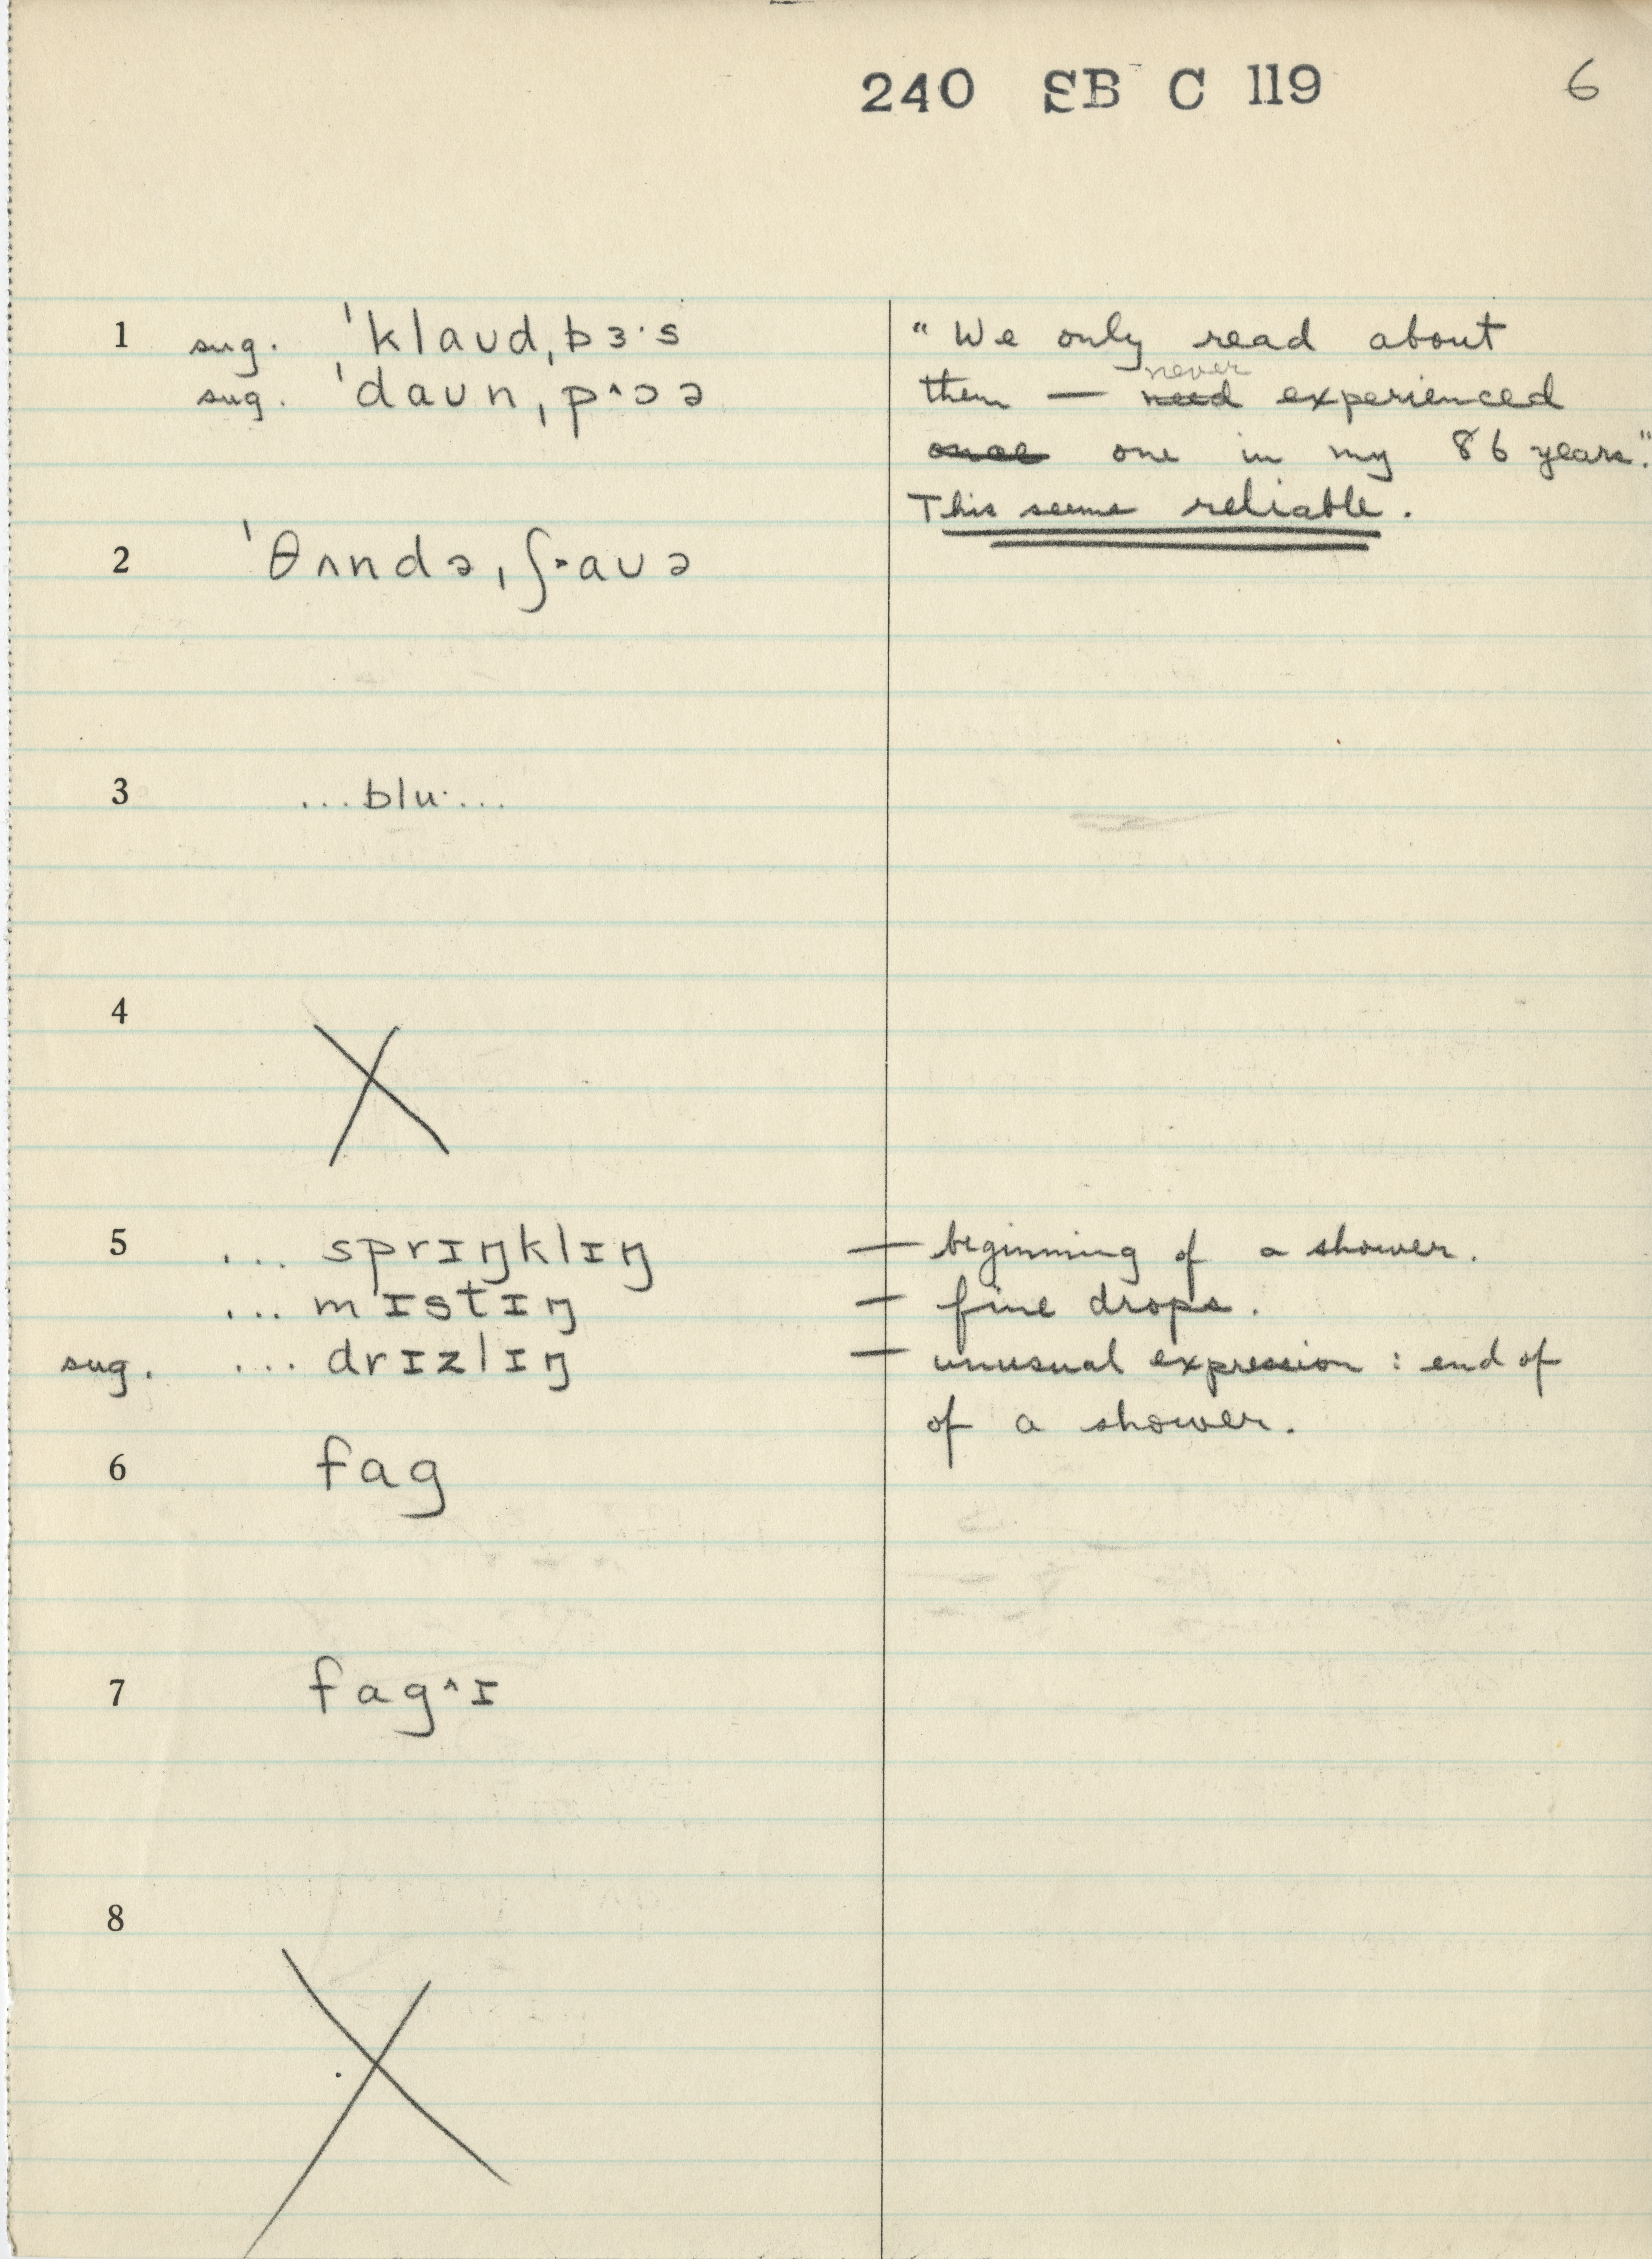 240 SB C 119 6
1 sug. ˈklaʊd,bɜ·s
sug. ˈdaʊn,p^ɔə
"We only read about
never
them — need experienced
once one in my 86 years."
This seems reliable.
2 ˈθʌndə,ʃ˃aʊə
3 ...blu·...
4 X
5 ... sprɪŋklɪŋ — beginning of a shower.
... mɪstɪŋ — fine drops.
sug. ... drɪzlɪŋ — unusual expression : end of
of a shower.
6 fag
7 fag^ɪ
8 X